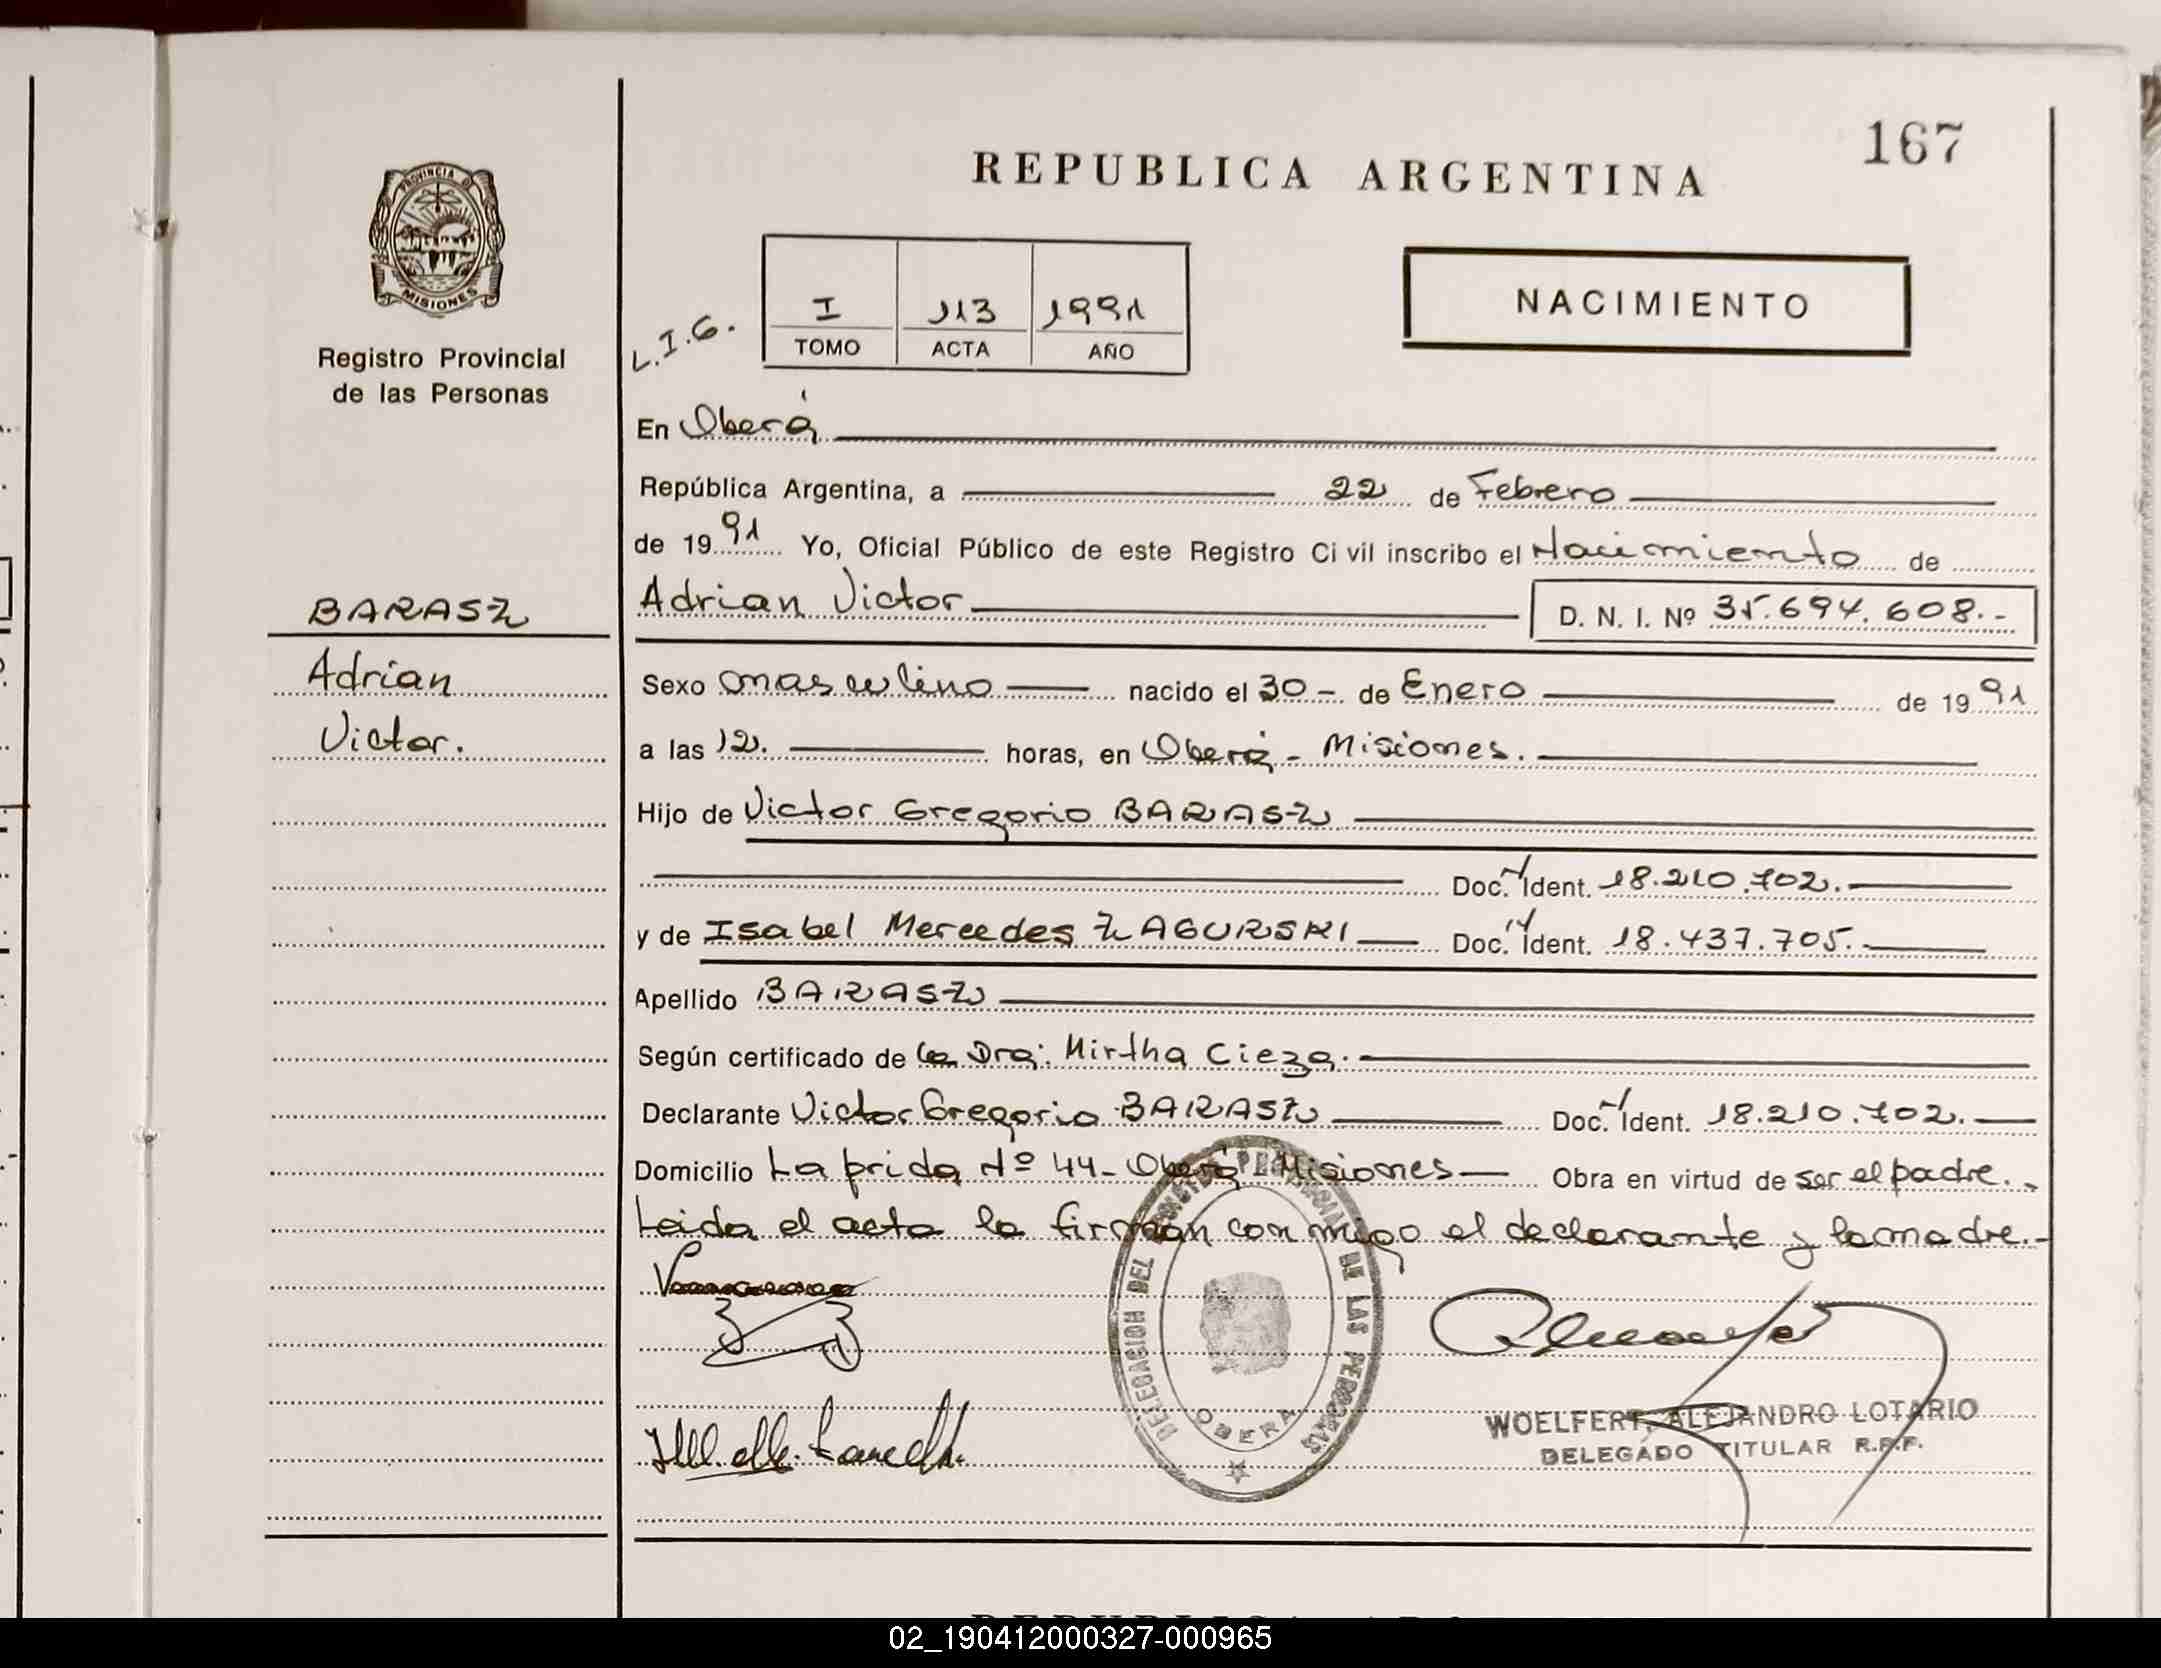 167
REPUBLICA ARGENTINA
PROVINCIA DE
MISIONES
Registro Provincial
de las Personas
L.I.G.
I 113 1991
TOMO ACTA AÑO
NACIMIENTO
En Oberá
República Argentina, a 22 de Febrero
de 1991 Yo, Oficial Público de este Registro Ci vil inscribo el Nacimiento de
BARASZ
Adrian
Victor.
Adrian Victor D. N. I. Nº 35.694.608.-
Sexo masculino nacido el 30 - de Enero de 1991
a las 12. horas, en Oberá - Misiones.
Hijo de Victor Gregorio BARASZ
Doc. Ident. 18.210.702.
y de Isabel Mercedes ZAGURSKI Doc. Ident. 18.437.705.
Apellido BARASZ
Según certificado de la Dra: Mirtha Cieza.
Declarante Victor Gregorio BARASZ Doc. Ident. 18.210.702.
Domicilio Laprida Nº 44 - Oberá Misiones Obra en virtud de ser el padre.
Leida el acta la firman con migo el declarante y la madre.-
DELEGACION DEL REGISTRO PROVINCIAL DE LAS PERSONAS
OBERA
WOELFERT, ALEJANDRO LOTARIO
DELEGADO TITULAR R.P.P.
02_190412000327-000965